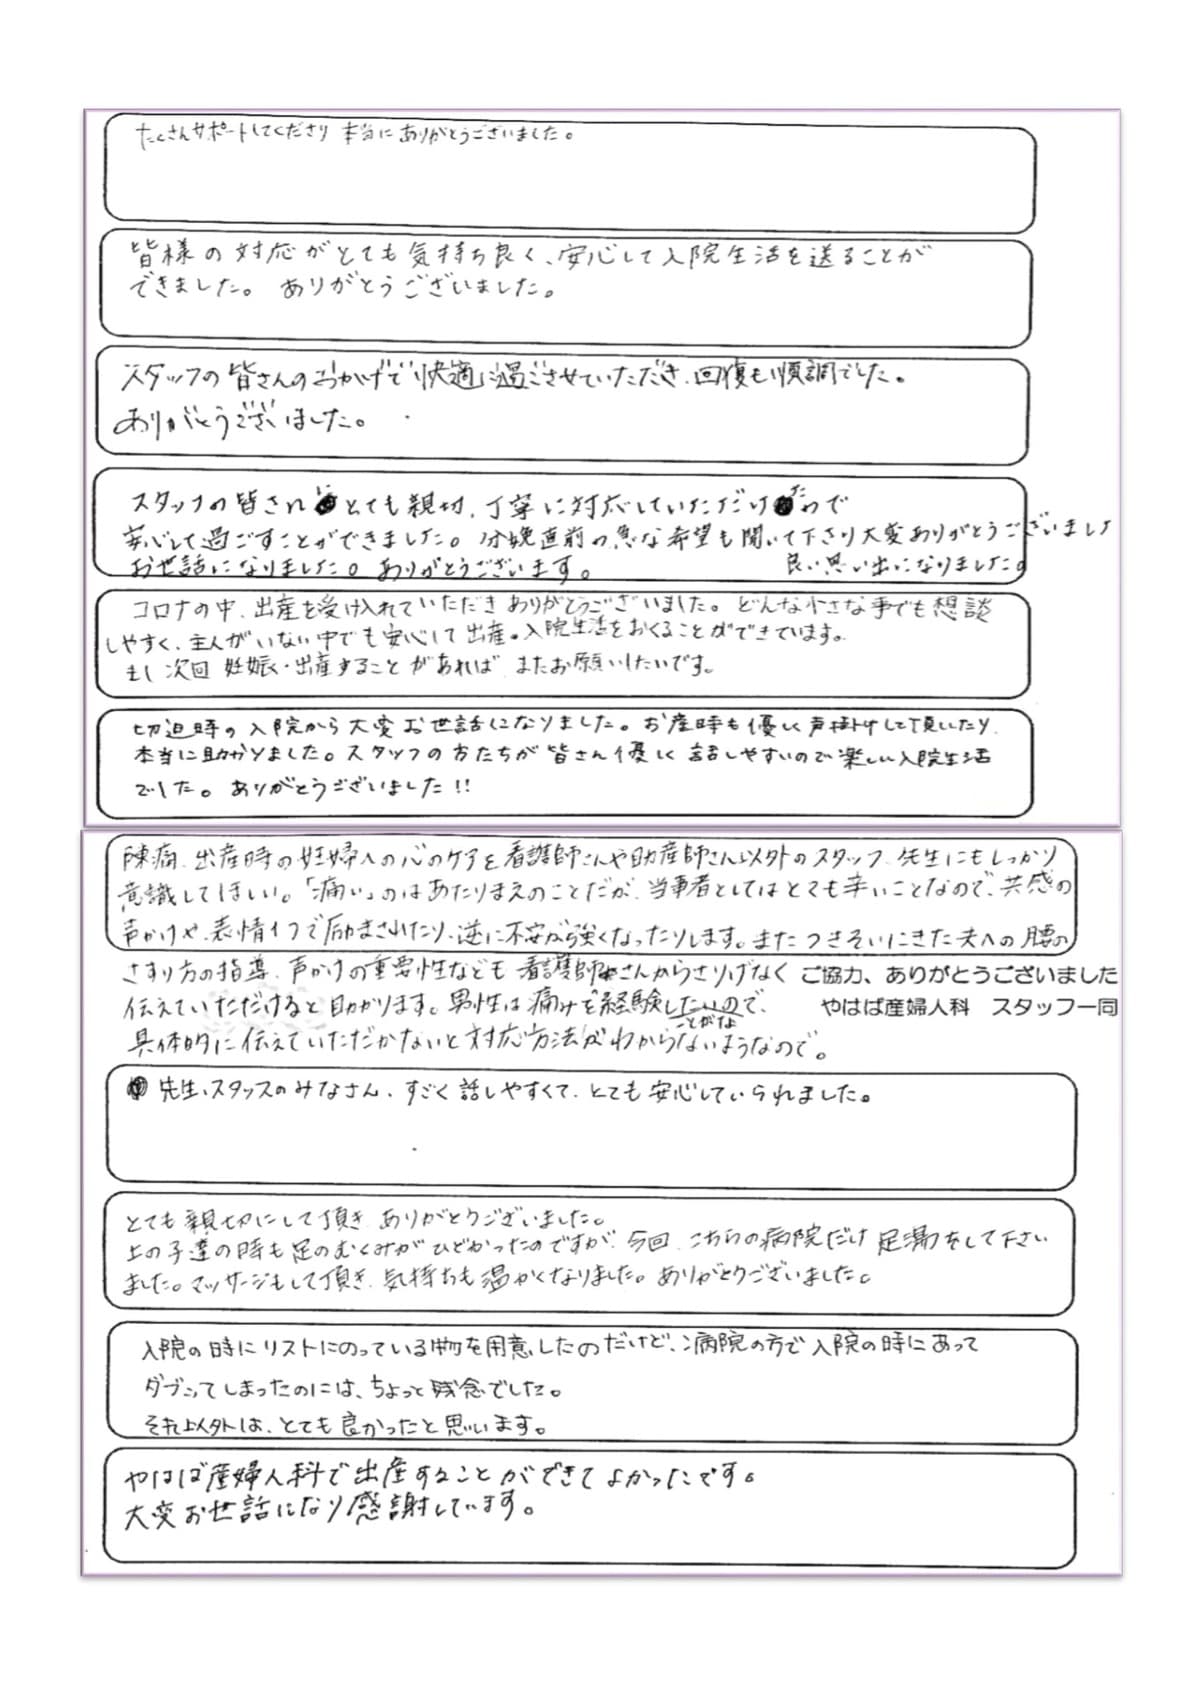 たくさんサポートしてくださり 本当にありがとうございました。
皆様の対応がとても気持ち良く、安心して入院生活を送ることが
できました。 ありがとうございました。
スタッフの皆さんのおかげで快適に過ごさせていただき、回復も順調でした。
ありがとうございました。
スタッフの皆さんにとても親切、丁寧に対応していただけたので
安心して過ごすことができました。分娩直前の急な希望も聞いて下さり大変ありがとうございました
お世話になりました。ありがとうございます。 良い思い出になりました。
コロナの中、出産を受け入れていただきありがとうございました。どんな小さな事でも想談
しやすく、主人がいない中でも安心して出産・入院生活をおくることができています。
もし次回 妊娠・出産することがあれば、またお願いしたいです。
切迫時の入院から大変お世話になりました。お産時も優しく声掛けして頂いたり、
本当に助かりました。スタッフの方たちが皆さん優しく話しやすいので楽しい入院生活
でした。ありがとうございました!!
陣痛、出産時の妊婦への心のケアを看護師さんや助産師さん以外のスタッフ、先生にもしっかり
意識してほしい。「痛い」のはあたりまえのことだが、当事者としてはとても辛いことなので、共感の
声かけや、表情1つで励まされたり、逆に不安が強くなったりします。またつきそいにきた夫への腰の
さすり方の指導、声かけの重要性なども看護師さんからさりげなく
伝えていただけると助かります。男性は痛みを経験したことがないので、
具体的に伝えていただかないと対応方法がわからないようなので。
ご協力、ありがとうございました
やはば産婦人科 スタッフ一同
先生、スタッスのみなさん、すごく話しやすくて、とても安心していられました。
とても親切にして頂き、ありがとうございました。
上の子達の時も足のむくみがひどかったのですが、今回、こちらの病院だけ足湯をして下さい
ました。マッサージもして頂き、気持ちも温かくなりました。ありがとうございました。
入院の時にリストにのっている物を用意したのだけど、病院の方で入院の時にあって
ダブってしまったのには、ちょっと残念でした。
それ以外は、とても良かったと思います。
やはば産婦人科で出産することができてよかったです。
大変お世話になり感謝しています。